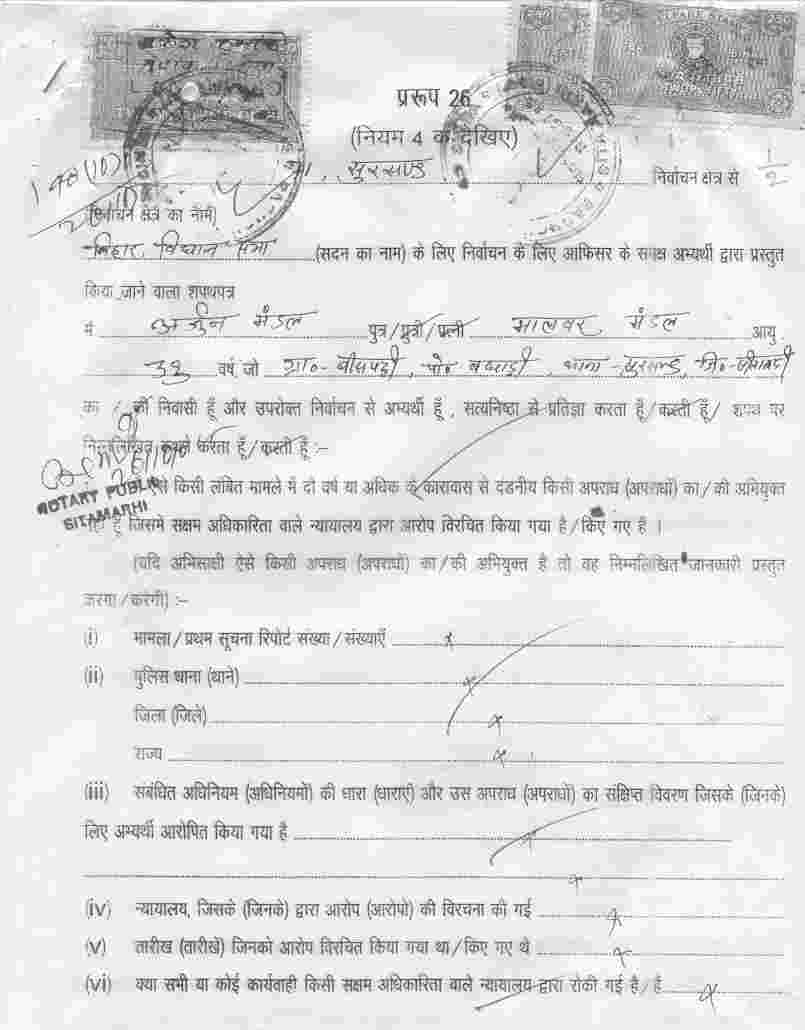 प्ररूप 26
(नियम 4 क देखिए)
सुरसण्ड निर्वाचन क्षेत्र से
(निर्वाचन क्षेत्र का नाम)
बिहार विधान सभा (सदन का नाम) के लिए निर्वाचन के लिए आफिसर के समक्ष अभ्यर्थी द्वारा प्रस्तुत
किया जाने वाला शपथपत्र
मैं अर्जुन मंडल पुत्र/पुत्री/पत्नी मंडल आयु
38 वर्ष, जो ग्रा०- पो० थाना- सुरसण्ड, जि०-
का / की निवासी हूँ और उपरोक्त निर्वाचन से अभ्यर्थी हूँ , सत्यनिष्ठा से प्रतिज्ञा करता हूँ/करती हूँ/ शपथ पर
निम्नलिखित कथन करता हूँ/करती हूँ :-
ऐसे किसी लंबित मामले में दो वर्ष या अधिक के कारावास से दंडनीय किसी अपराध (अपराधों) का/की अभियुक्त
NOTARY PUBLIC
SITAMARHI
नहीं हूँ जिसमे सक्षम अधिकारिता वाले न्यायालय द्वारा आरोप विरचित किया गया है/किए गए है ।
(यदि अभिसाक्षी ऐसे किसी अपराध (अपराधों) का/की अभियुक्त है तो वह निम्नलिखित जानकारी प्रस्तुत
करेगा/करेगी) :-
(i) मामला/प्रथम सूचना रिपोर्ट संख्या/संख्याएँ x
(ii) पुलिस थाना (थाने) x
जिला (जिले) x
राज्य x
(iii) सबंधित अधिनियम (अधिनियमों) की धारा (धाराएं) और उस अपराध (अपराधों) का संक्षिप्त विवरण जिसके (जिनके)
लिए अभ्यर्थी आरोपित किया गया है x
x
(iv) न्यायालय, जिसके (जिनके) द्वारा आरोप (आरोपों) की विरचना की गई x
(v) तारीख (तारीखें) जिनको आरोप विरचित किया गया था/किए गए थे x
(vi) क्या सभी या कोई कार्यवाही किसी सक्षम अधिकारिता वाले न्यायालय द्वारा रोकी गई है/हैं x